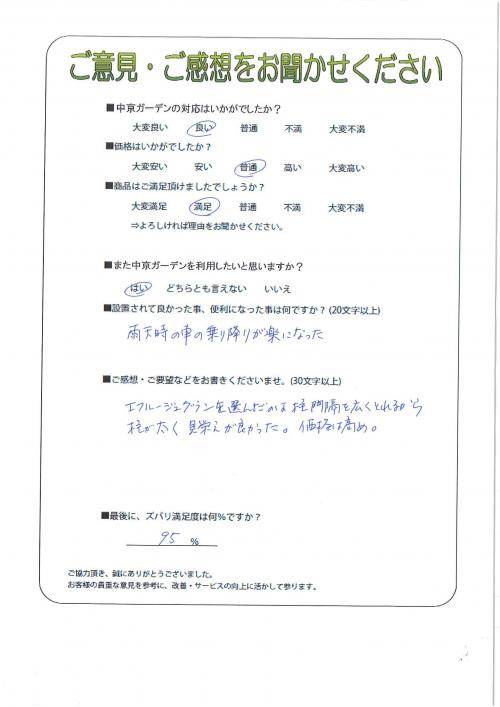 ご意見・ご感想をお聞かせください
■中京ガーデンの対応はいかがでしたか？
大変良い 良い 普通 不満 大変不満
■価格はいかがでしたか？
大変安い 安い 普通 高い 大変高い
■商品はご満足頂けましたでしょうか？
大変満足 満足 普通 不満 大変不満
⇒よろしければ理由をお聞かせください。
■また中京ガーデンを利用したいと思いますか？
はい どちらとも言えない いいえ
■設置されて良かった事、便利になった事は何ですか？(20文字以上)
雨天時の車の乗り降りが楽になった
■ご感想・ご要望などをお書きくださいませ。(30文字以上)
エフルージュグランを選んだのは柱間隔を広くとれるから
柱が太く見栄えが良かった。価格は高め。
■最後に、ズバリ満足度は何％ですか？
95 %
ご協力頂き、誠にありがとうございました。
お客様の貴重な意見を参考に、改善・サービスの向上に活かして参ります。